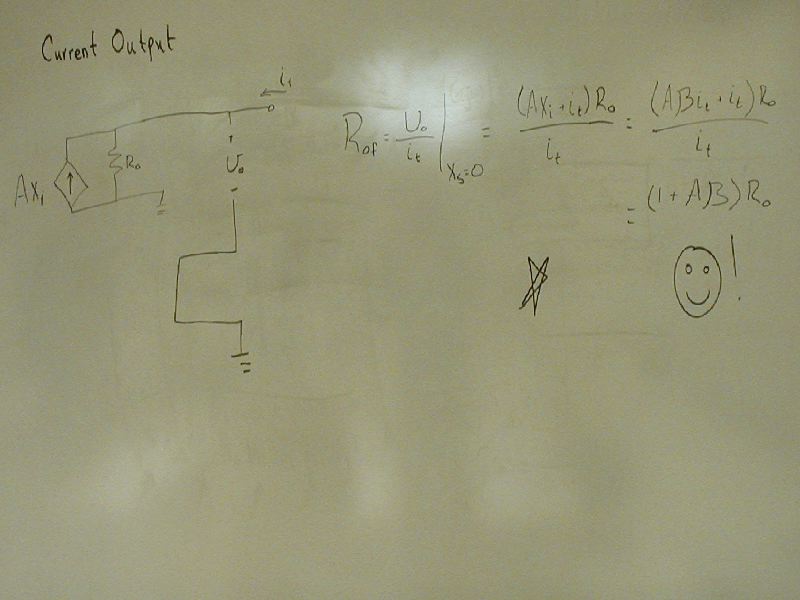 Current Output
i_t
Ax_i
R_o
+
U_o
-
R_of = U_o / i_t | x_s=0 = (Ax_i + i_t) R_o / i_t = (ABi_t + i_t) R_o / i_t
= (1 + AB) R_o
!